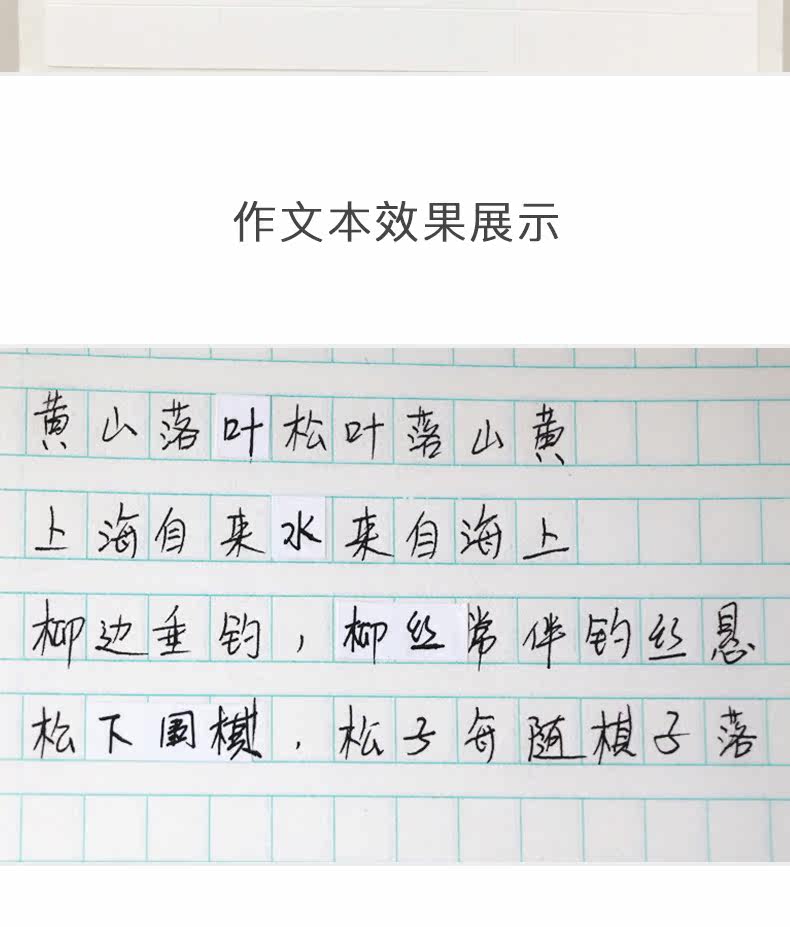 作文本效果展示
黄山落叶松叶落山黄
上海自来水来自海上
柳边垂钓，柳丝常伴钓丝悬
松下围棋，松子每随棋子落